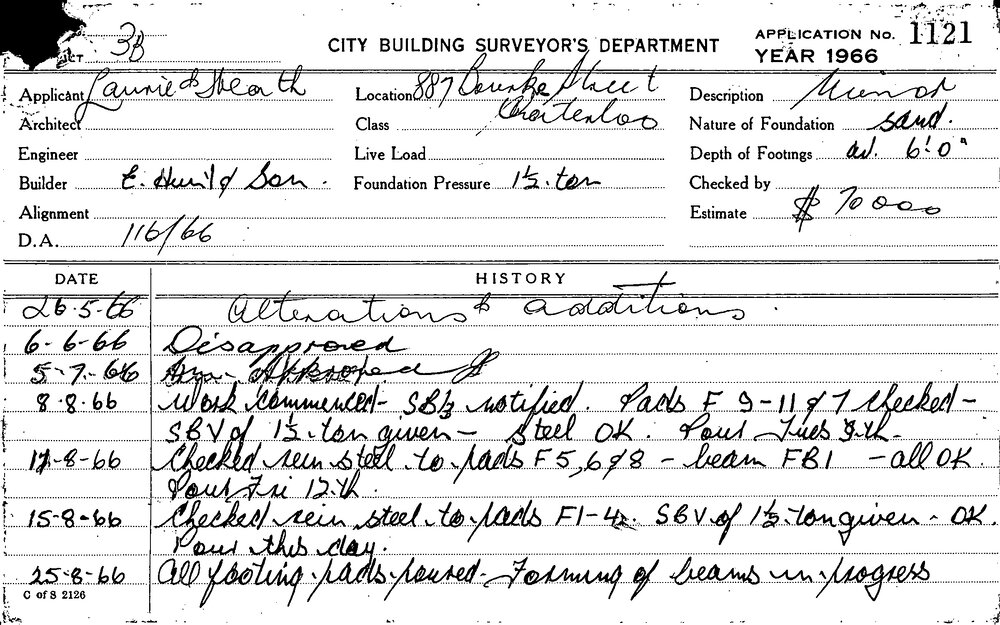 3B
CITY BUILDING SURVEYOR'S DEPARTMENT
APPLICATION No. 1121
YEAR 1966
Applicant Laurie & Heath
Location 887 Bourke Street
Waterloo
Description Minor
Architect
Class
Nature of Foundation sand.
Engineer
Live Load
Depth of Footings av. 6'.0"
Builder E. Hunt & Son.
Foundation Pressure 1½.ton
Checked by
Alignment
Estimate $ 70000
D.A. 116/66
DATE HISTORY
26.5.66 Alterations & additions.
6-6-66 Disapproved
5-7-66 Approved
8.8.66 Work commenced- SB½ notified. Pads F 9-11 & 7 checked-
SBV of 1½.ton given- steel OK. Pour Tues 9th.
11-8-66 Checked rein steel to pads F5,6 & 8 - beam FB1 - all OK.
Pour Fri 12th.
15-8-66 Checked rein steel to pads F1-4. SBV of 1½.ton given. OK.
Pour this day.
25-8-66 All footing pads poured- Forming of beams in progress
C of S 2126